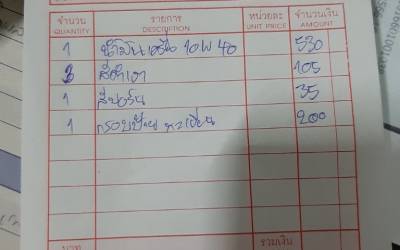 จำนวน รายการ หน่วยละ จำนวนเงิน
QUANTITY DESCRIPTION UNIT PRICE AMOUNT
1 น้ำมันเครื่อง 10W 40 530
3 105
1 35
1 กรอบป้าย ทะเบียน 200
บาท รวมเงิน